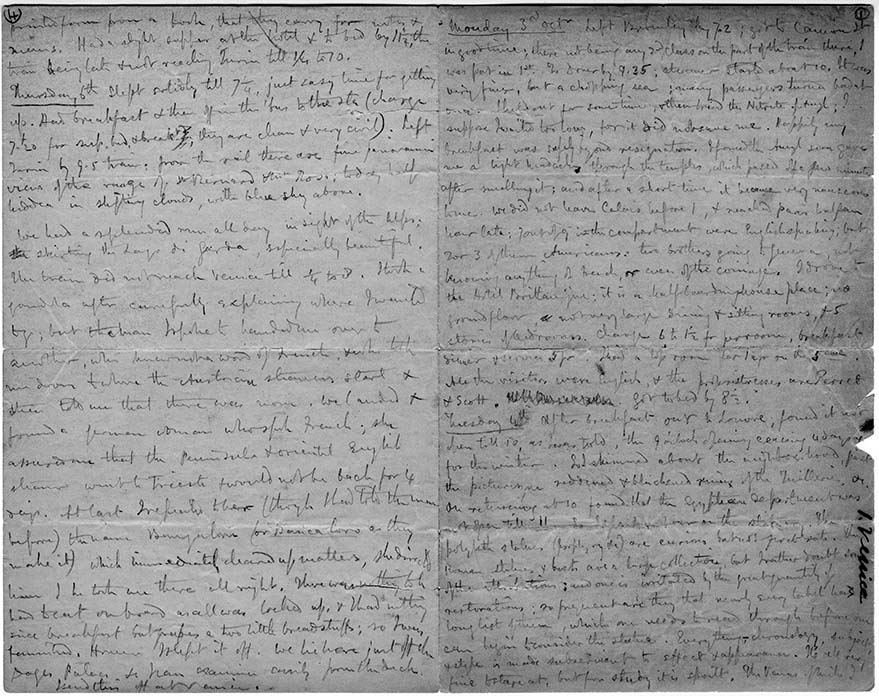 ④
printed form from a book, that they carry for notes &
means. Had a slight supper at the hotel & to bed by 11½, the
train being late & not reaching Turin till ¼ to 10.
Thursday 6th Slept solidly till 7¼, just easy time for getting
up. Had breakfast & then off in the bus to the sta (charge
7.20 for sup. bed, & breakf., they are clean & very civil). Left
Turin by 9.5 train. from the rail there are fine panoramic
views of the range of St Bernard & Mte Rosa; today half
hidden in shifting clouds, with blue sky above.
We had a splendid run all day in sight of the Alps;
skirting the Lago di Garda, especially beautiful.
The train did not reach Venice till ¼ to 8. I took a
gondola after carefully explaining where I wanted
to go, but the man I spoke to handed me over to
another, who knew not a word of French, & who took
me down to where the Austrian steamers start &
then told me that there was none. We landed &
found a german woman who spoke French; she
assured me that the Peninsula & oriental English
steamer went to Trieste & would not be back for 4
days. At last I repeated to her (though I had told the man
before) the name (or as they
make it) which immediately cleared up matters, she directed
him & he took me there all right. There was nothing to be
had to eat on board as all was locked up, & I had nothing
since breakfast but grapes & two little breadstuffs; so I was
famished. However I slept it off. We lie here just off the
Doges Palace so I can examine easily from the deck.
Send this off at Venice.
①
Monday 3rd Octr Left Bromley by 7.2; got to Cannon St
in good time; there not being any 2nd class on the part of the train there, I
was put in 1st. To Dover by 9.35; steamer started about 10. It was
very fine, but a chopping sea; many passengers turned bad at
once. I held out for some time, & then tried the Nitrate of Amyl; I
suppose I waited too long, for it did not save me. Happily my
breakfast was safely beyond resignation. I found the Amyl soon gave
me a tight headache through the temples, which passed off a few minutes
after smelling it; and after a short time it became very nauseous
to me. We did not leave Calais before 1, & reached Paris half an
hour late; 7 out of 8 in the compartment were English speaking, but
2 or 3 of them Americans: two brothers going to Geneva, not
knowing anything of French, or even of the coinage. I drove to
the Hotel Brittanique; it is a half boarding house place; no
ground floor not very large dining & sitting rooms, & 5
stories of bedrooms. Charge 6 to for pr room, breakfast
dinner & service 5 fr. I had a top room for on the 5eme.
All the visitors were English, & the proprietresses are
& Scott. Got to bed by 8½.
Tuesday 4th After breakfast out to Louvre, found it not
open till 10, as I was told, the 9 oclock opening ceasing 4 days ago
for the winter. So I skimmed about the neighbourhood, past
the picturesque reddened & blackened ruins of the Tuilleries, &c.
On returning at 10 found that the Egyptian department was
not open till 11. So I spent an hour on the statuary. The
polylith statues are curious but not first rate. The
Roman statues & busts are a large collection, but I rather doubt some
of the attributions; and one is irritated by the great quantity of
restorations; so frequent are they that nearly every label has a
long list of them, which one needs to read through before one
can begin to consider the statue. Everything – chronology, subject
& style is made subservient to effect & appearance. It is all very
fine to stare at, but for study it is spoilt. The Venus of Milo
1. Venice